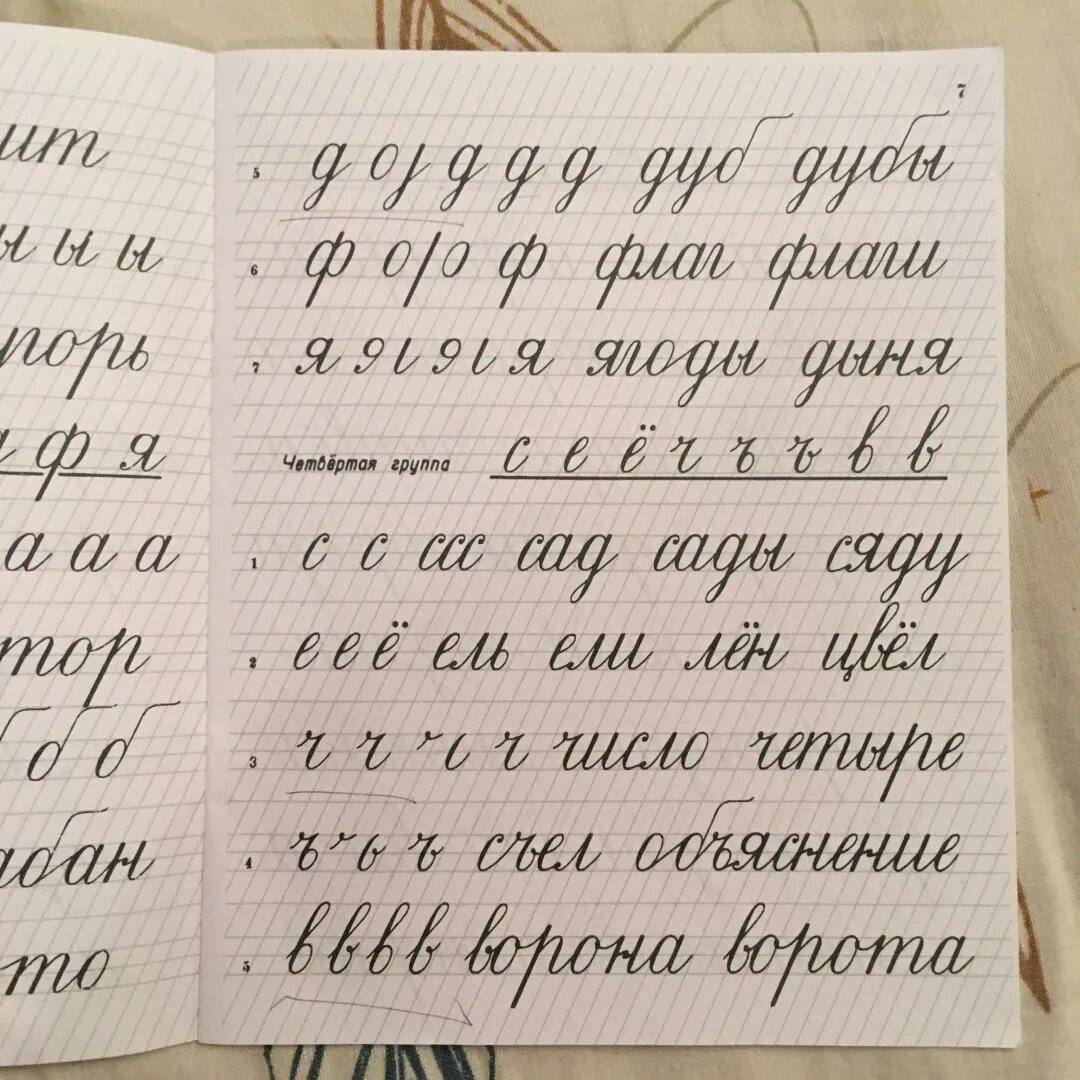 ы ы ы
порь
ф я
а а а
тор
б б б
абан
то
7
5 д о ј д д д дуб дубы
6 ф о ӏ о ф флаг флаги
7 я я я ягоды дыня
Четвёртая группа с е ё ч ъ ъ в в
1 с с ссс сад сады сяду
2 е е ё ель ели лён цвёл
3 ч ч ч число четыре
4 ъ ъ съел объяснение
5 в в в в ворона ворота